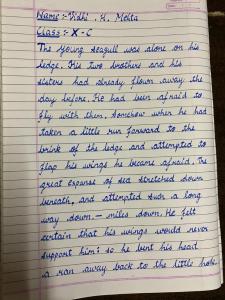 Name :- Vidhi . H. Mehta
Class :- X - C
The young seagull was alone on his
ledge. His two brothers and his
sisters had already flown away the
day before. He had been afraid to
fly with them. Somehow when he had
taken a little run forward to the
brink of the ledge and attempted to
flap his wings he became afraid. The
great expanse of sea stretched down
beneath, and attempted such a long
way down. - miles down. He felt
certain that his wings would never
support him; so he bent his head
a ran away back to the little hole